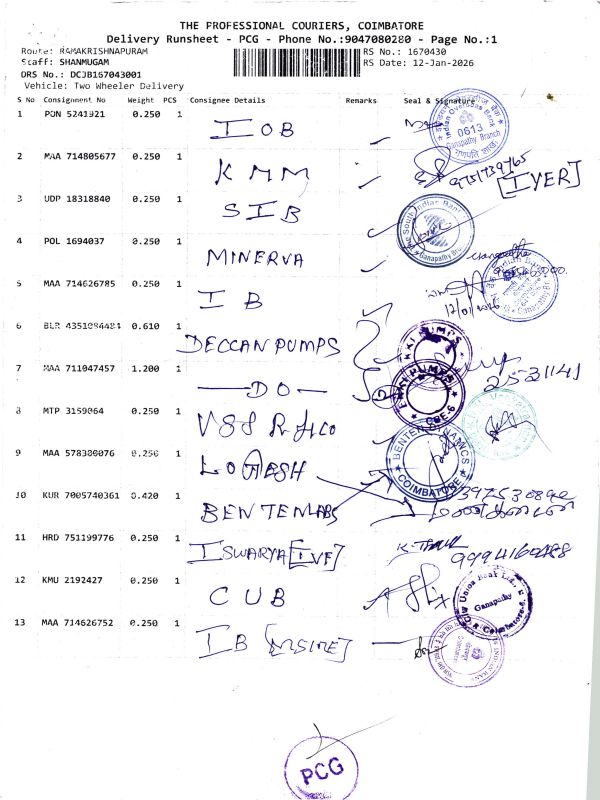 THE PROFESSIONAL COURIERS, COIMBATORE
Delivery Runsheet - PCG - Phone No.:9047080280 - Page No.:1
Route: RAMAKRISHNAPURAM RS No.: 1670430
Staff: SHANMUGAM RS Date: 12-Jan-2026
DRS No.: DCJB167043001
Vehicle: Two Wheeler Delivery
S No Consignment No Weight PCS Consignee Details Remarks Seal & Signature
1 PON 5241921 0.250 1 IOB
Indian Overseas Bank 0613 Ganapathy Branch
2 MAA 714805677 0.250 1 KMM
9751739765
[IYER]
3 UDP 18318840 0.250 1 SIB
The South Indian Bank Ganapathy
4 POL 1694037 0.250 1 MINERVA
5 MAA 714626785 0.250 1 IB
Indian Bank
6 BLR 4351 0.610 1 DECCAN PUMPS
PUMPS
7 MAA 711047457 1.200 1 —DO—
PUMPS CBE-6
2531141
8 MTP 3159064 0.250 1
9 MAA 578380076 0.250 1 LOGESH
BENTEN DYNAMICS COIMBATORE
10 KUR 7005740361 0.420 1 BENTEN LABS
11 HRD 751199776 0.250 1 ISWARYA [IVF]
12 KMU 2192427 0.250 1 CUB
City Union Bank Ltd. Ganapathy Coimbatore-6
13 MAA 714626752 0.250 1 IB [MSME]
INDIAN BANK
PCG